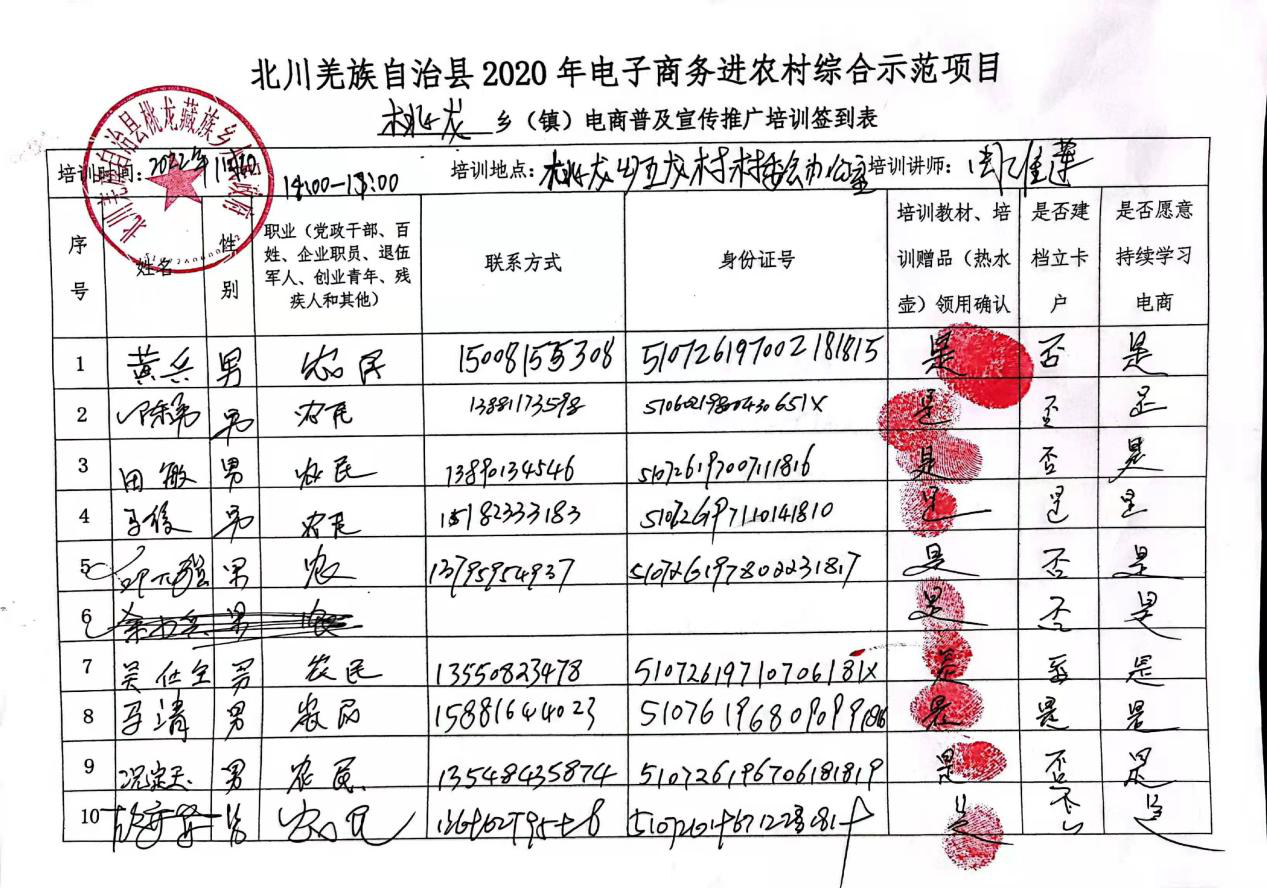 北川羌族自治县2020年电子商务进农村综合示范项目
桃龙乡（镇）电商普及宣传推广培训签到表
北川羌族自治县桃龙藏族乡人民政府
培训时间：2022年11月10 14:00-17:00 培训地点：桃龙乡五龙村村委会办公室 培训讲师：
序号 姓名 性别 职业（党政干部、百姓、企业职员、退伍军人、创业青年、残疾人和其他） 联系方式 身份证号 培训教材、培训赠品（热水壶）领用确认 是否建档立卡户 是否愿意持续学习电商
1 黄兵 男 农民 15008155308 510726197002181815 是 否 是
2 陈勇 男 农民 13881173598 51060219800430651X 是 否 是
3 田敏 男 农民 13890134546 510726197007111816 是 否 是
4 马俊 男 农民 15182333183 510726197110141810 是 是 是
5 男 农 13795954937 510726197802231817 是 否 是
6 男 农 是 否 是
7 吴仕全 男 农民 13550823478 51072619710706181X 是 否 是
8 马清 男 农民 15881644023 是 是 是
9 男 农民 13548435874 510726196706181819 是 否 是
10 男 农民 是 否 是